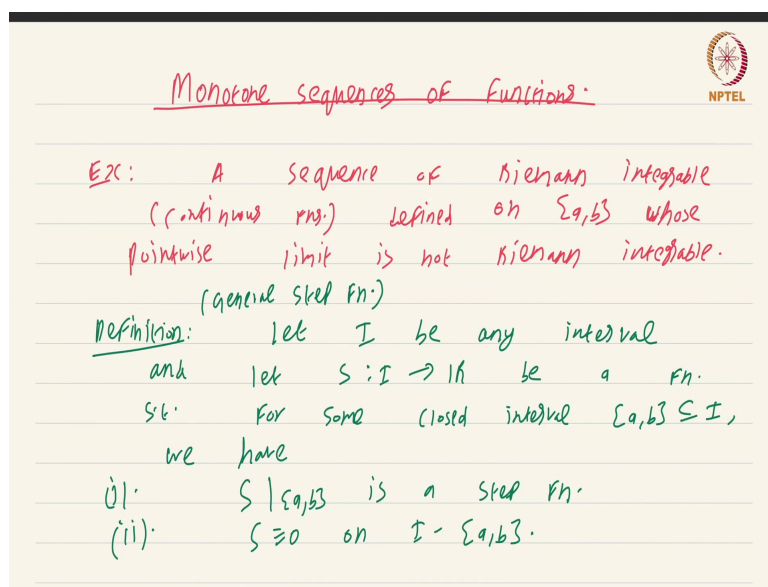 Monotone sequences of functions.
NPTEL
Ex: A sequence of Riemann integrable
(continuous fns.) defined on [a,b] whose
pointwise limit is not Riemann integrable.
(General step fn.)
Definition: Let I be any interval
and let S : I → ℝ be a fn.
s.t. for some closed interval [a,b] ⊆ I,
we have
(i). S|[a,b] is a step fn.
(ii). S ≡ 0 on I - [a,b].